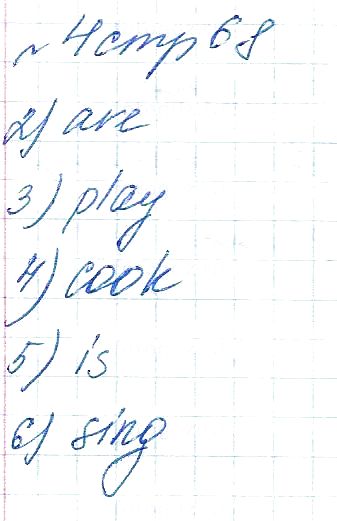 ~ 4 стр 68
2) are
3) play
4) cook
5) is
6) sing